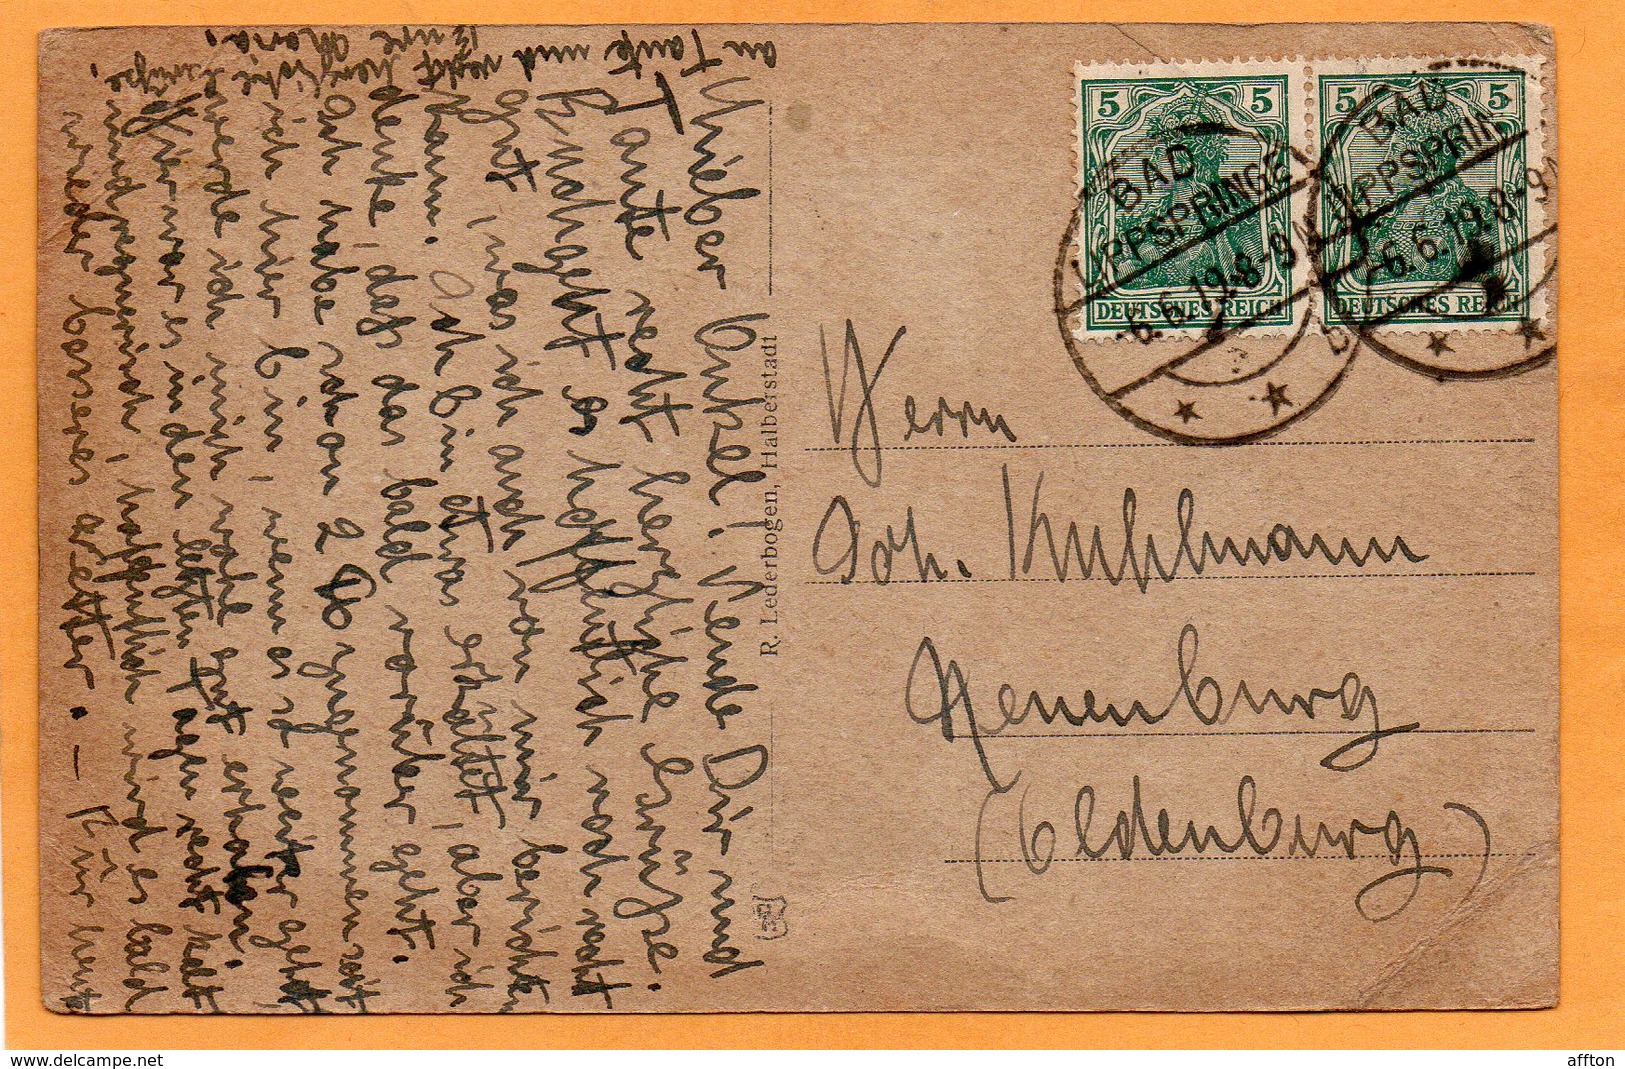 Lieber Onkel! Sende Dir und
Tante recht herzliche Grüße.
Euch geht es hoffentlich noch recht
gut, was ich auch von mir berichten
kann. Ich bin etwas erkältet, aber ich
denke, daß das bald vorüber geht.
Ich habe schon 2 ℔ zugenommen seit
ich hier bin, wenn es so weiter geht
werde ich mich wohl gut erholen.
Hier war es in den letzten Tagen recht kalt
und regnerisch, hoffentlich wird es bald
wieder besseres Wetter. – Für heute
recht herzliche Grüße,
an Tante und
Eure Maria.
R. Lederbogen, Halberstadt
5 5
DEUTSCHES REICH
5 5
DEUTSCHES REICH
BAD
LIPPSPRINGE
-6.6.19.8-9
BAD
LIPPSPRIN
-6.6.19.8-9
Herrn
Joh. Kuhlmann
Neuenburg
(Oldenburg)
affton